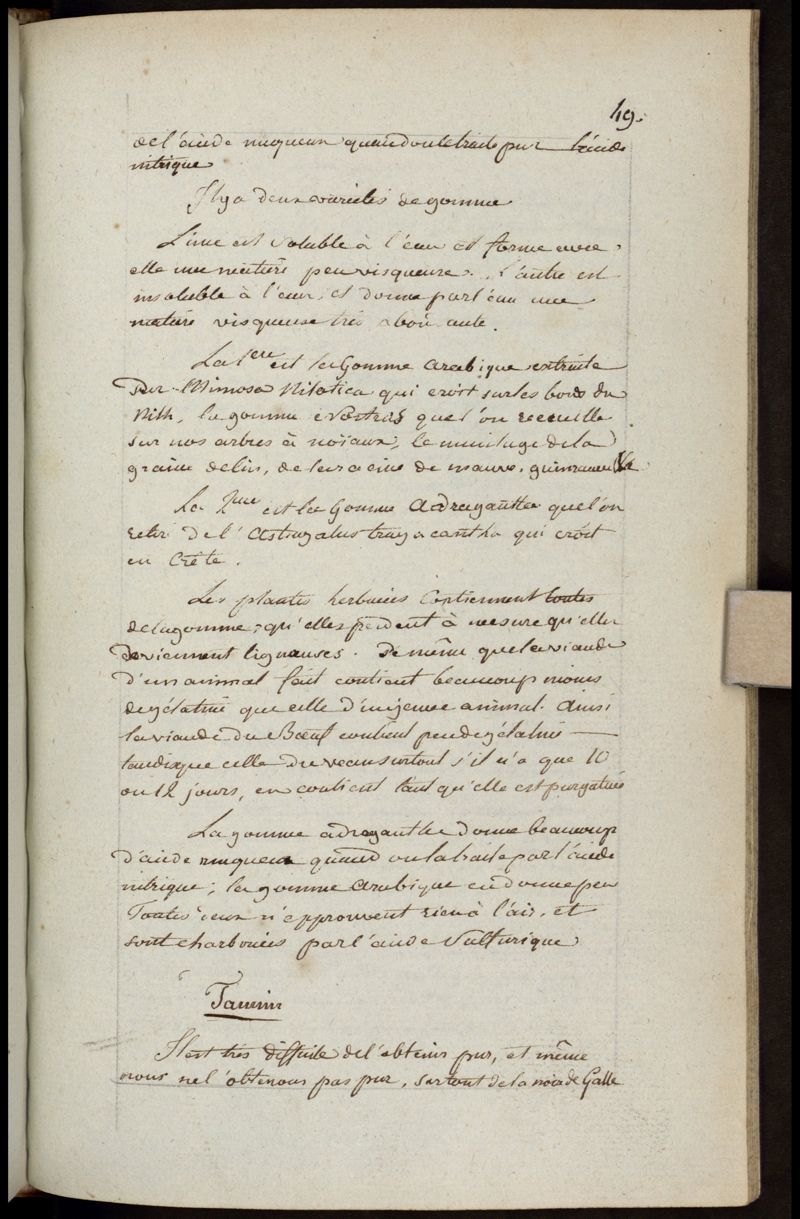 49.
de l'acide muqueux quand on le traite par l'acide
nitrique
Il y a deux variétés de gomme
L'une est soluble à l'eau et forme avec
elle une matière peu visqueuse. L'autre est
insoluble à l'eau, et donne par l'eau une
matière visqueuse très abondante.
La 1ere est la Gomme arabique extraite
Du Mimosa Nilotica qui croit sur les bords du
Nill, la gomme que l'on recueille
sur nos arbres à noïaux, le mucilage de la
graine de lin, de la racine de mauve, guimauve &a
La 2me est la Gomme adragantte que l'on
retir de l'Astragalus tragacantha qui croit
en Crète.
Les plantes herbacées contiennent toutes
de la gomme, qu'elles perdent à mesure qu'elles
deviennent ligneuses. De même que la viande
d'un animal fait contient beaucoup moins
de gélatine que celle d'un jeune animal. Ainsi
la viande du Bœuf contient peu de gélatine
tandisque celle du veau surtout s'il n'a que 10
ou 12 jours, en contient tant qu'elle est purgative
La gomme adragantte donne beaucoup
d'acide muqueux quand on la traite par l'acide
nitrique; la gomme arabique en donne peu
Toutes deux n'epprouvent rien à l'air, et
sont charbonées par l'acide Sulfurique
Tannin
Il est très difficile de l'obtenir pur, et même
nous ne l'obtenons pas pur, surtout de la noix de Galle